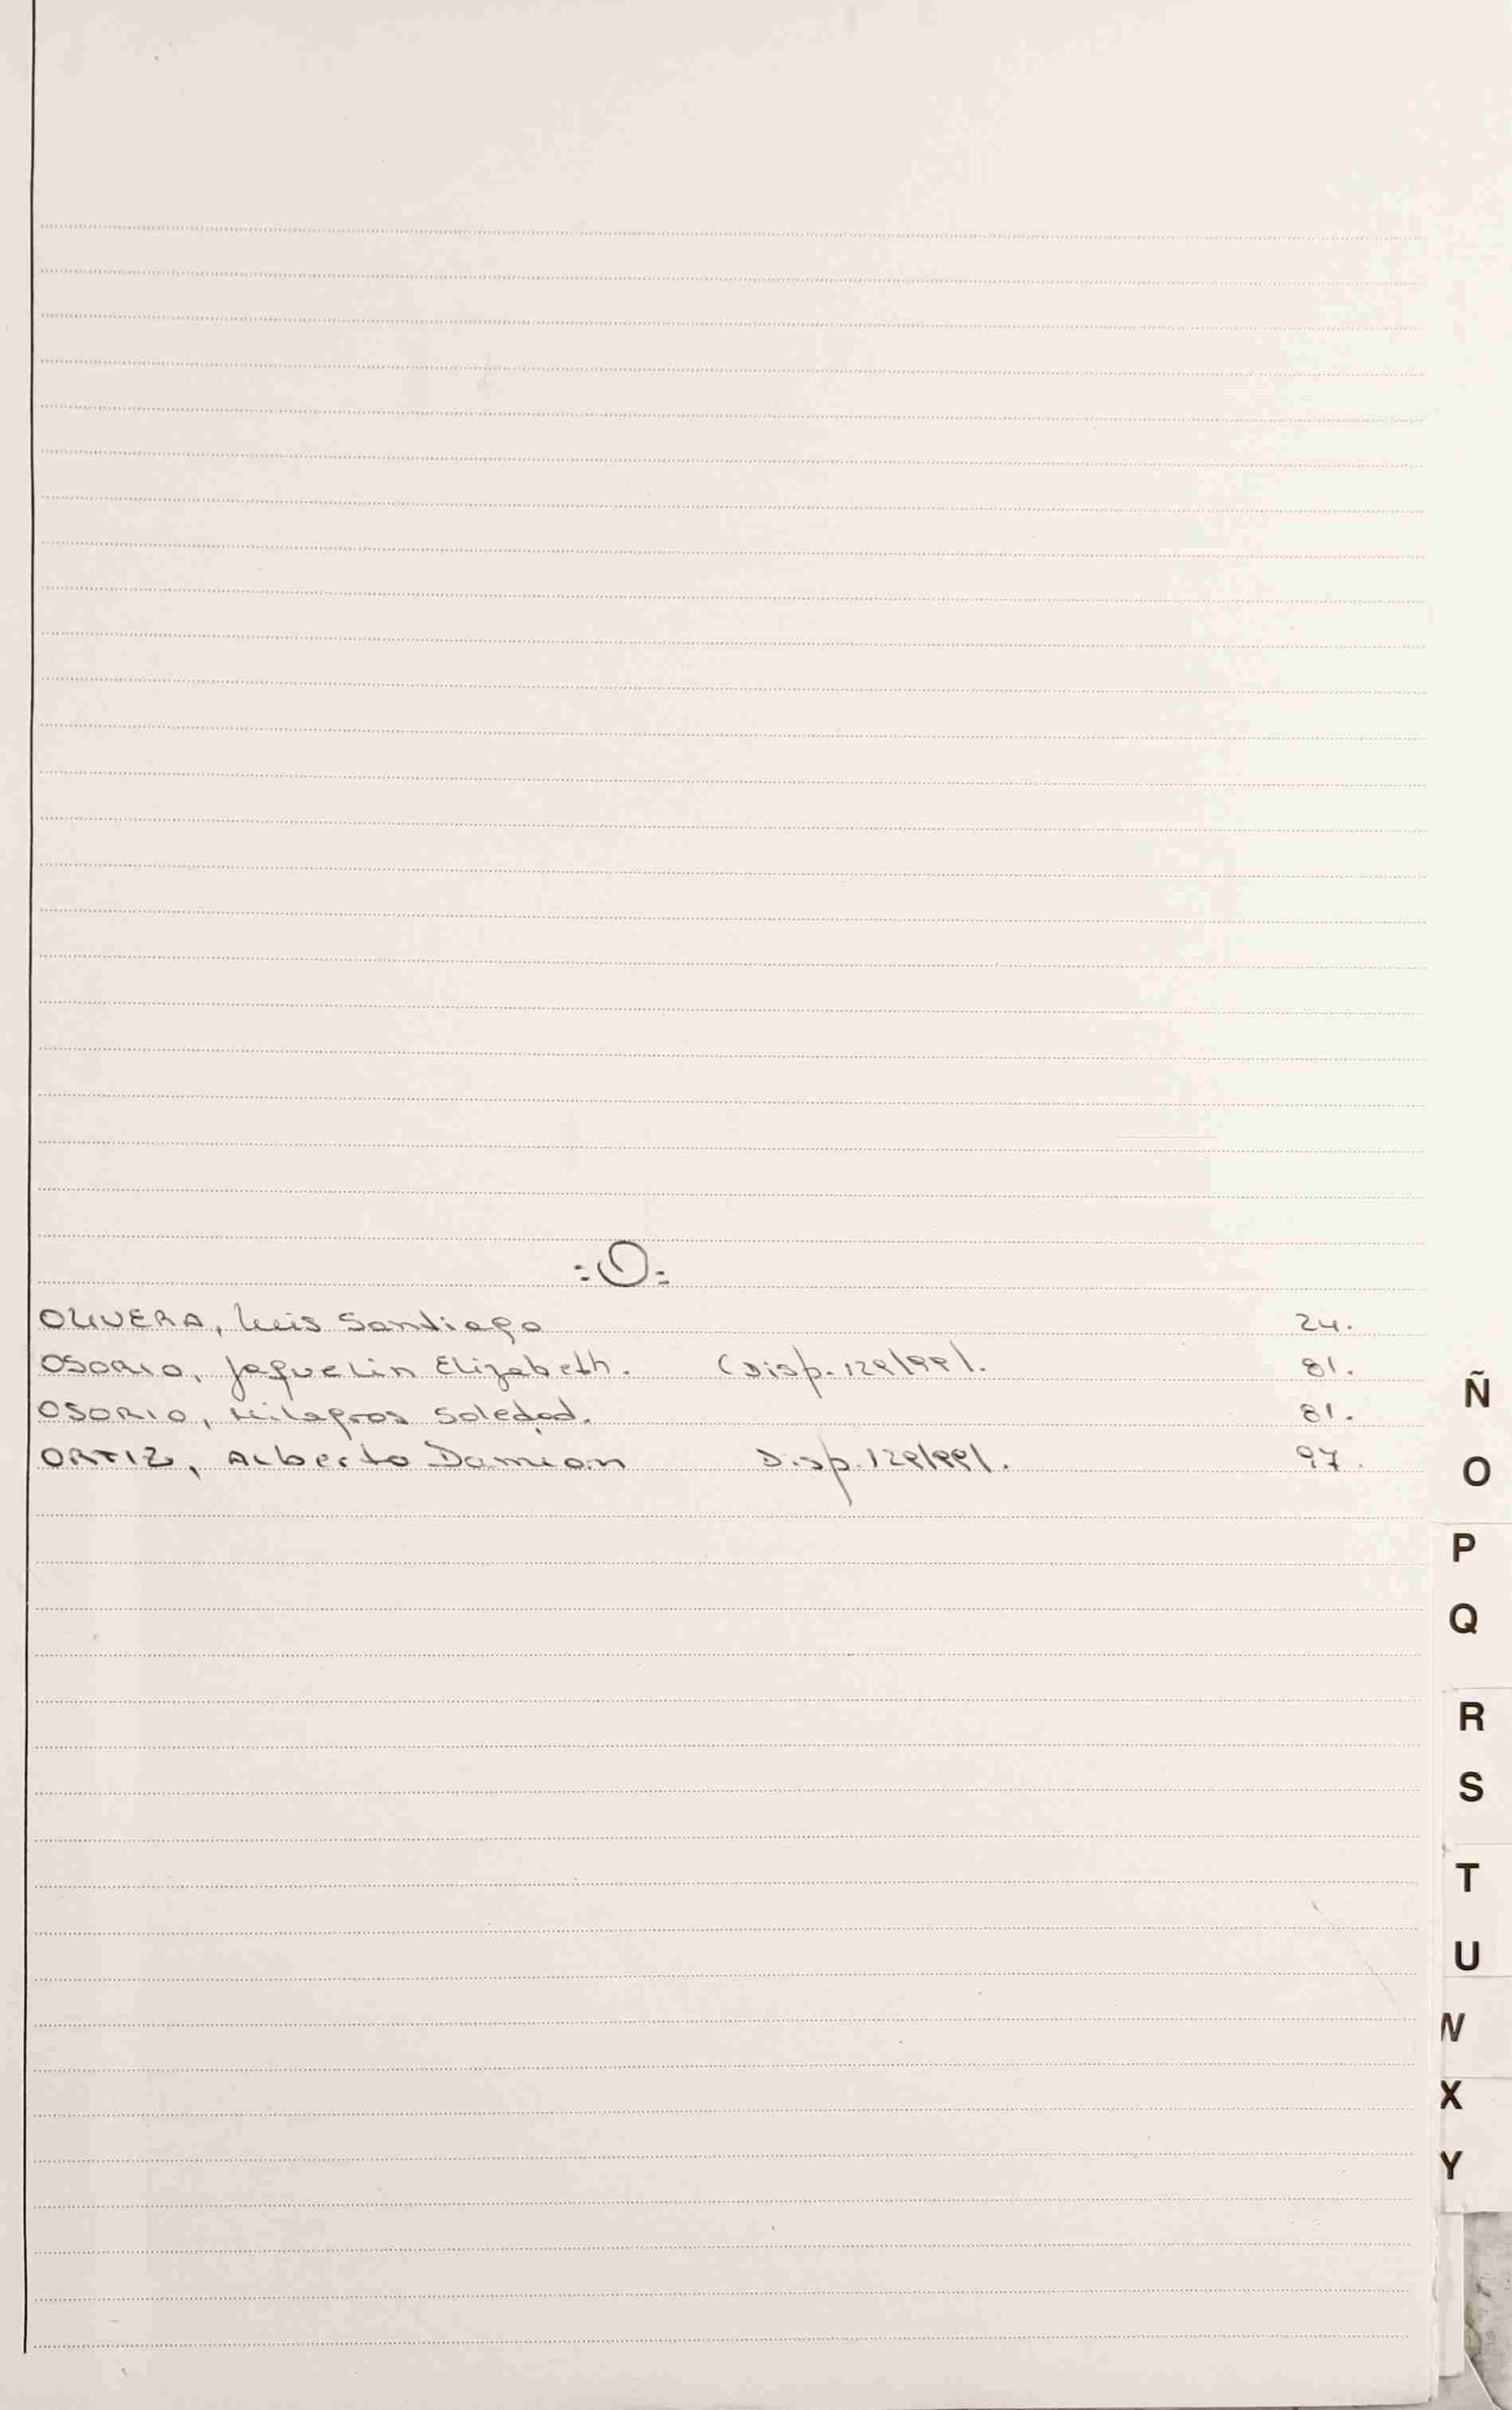 =O=
OLIVERA, Luis Santiago 24.
OSORIO, Jaquelin Elizabeth. (Disp. 129/99). 81.
OSORIO, Milagros Soledad. 81.
ORTIZ, Alberto Damian Disp. 129/99). 97.
Ñ
O
P
Q
R
S
T
U
W
X
Y